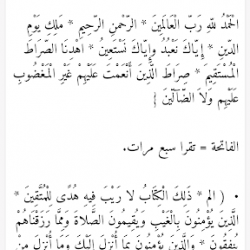 الْحَمْدُ للّهِ رَبِّ الْعَالَمِينَ * الرَّحْمنِ الرَّحِيمِ * مَلِكِ يَوْمِ
الدِّينِ * إِيَّاكَ نَعْبُدُ وإِيَّاكَ نَسْتَعِينُ * اهْدِنَا الصِّرَاطَ
الْمُسْتَقِيمَ * صِرَاطَ الَّذِينَ أَنْعَمْتَ عَلَيْهِمْ غَيْرِ الْمَغْضُوبِ
عَلَيْهِمْ وَلَا الضَّالِّينَ }
الفاتحة = تقرا سبع مرات.
• ( الم * ذَلِكَ الْكِتَابُ لَا رَيْبَ فِيهِ هُدًى لِلْمُتَّقِينَ *
الَّذِينَ يُؤْمِنُونَ بِالْغَيْبِ وَيُقِيمُونَ الصَّلَاةَ وَمِمَّا رَزَقْنَاهُمْ
يُنفِقُونَ * وَالَّذِينَ يُؤْمِنُونَ بِمَا أُنْزِلَ إِلَيْكَ وَمَا أُنْزِلَ مِنْ